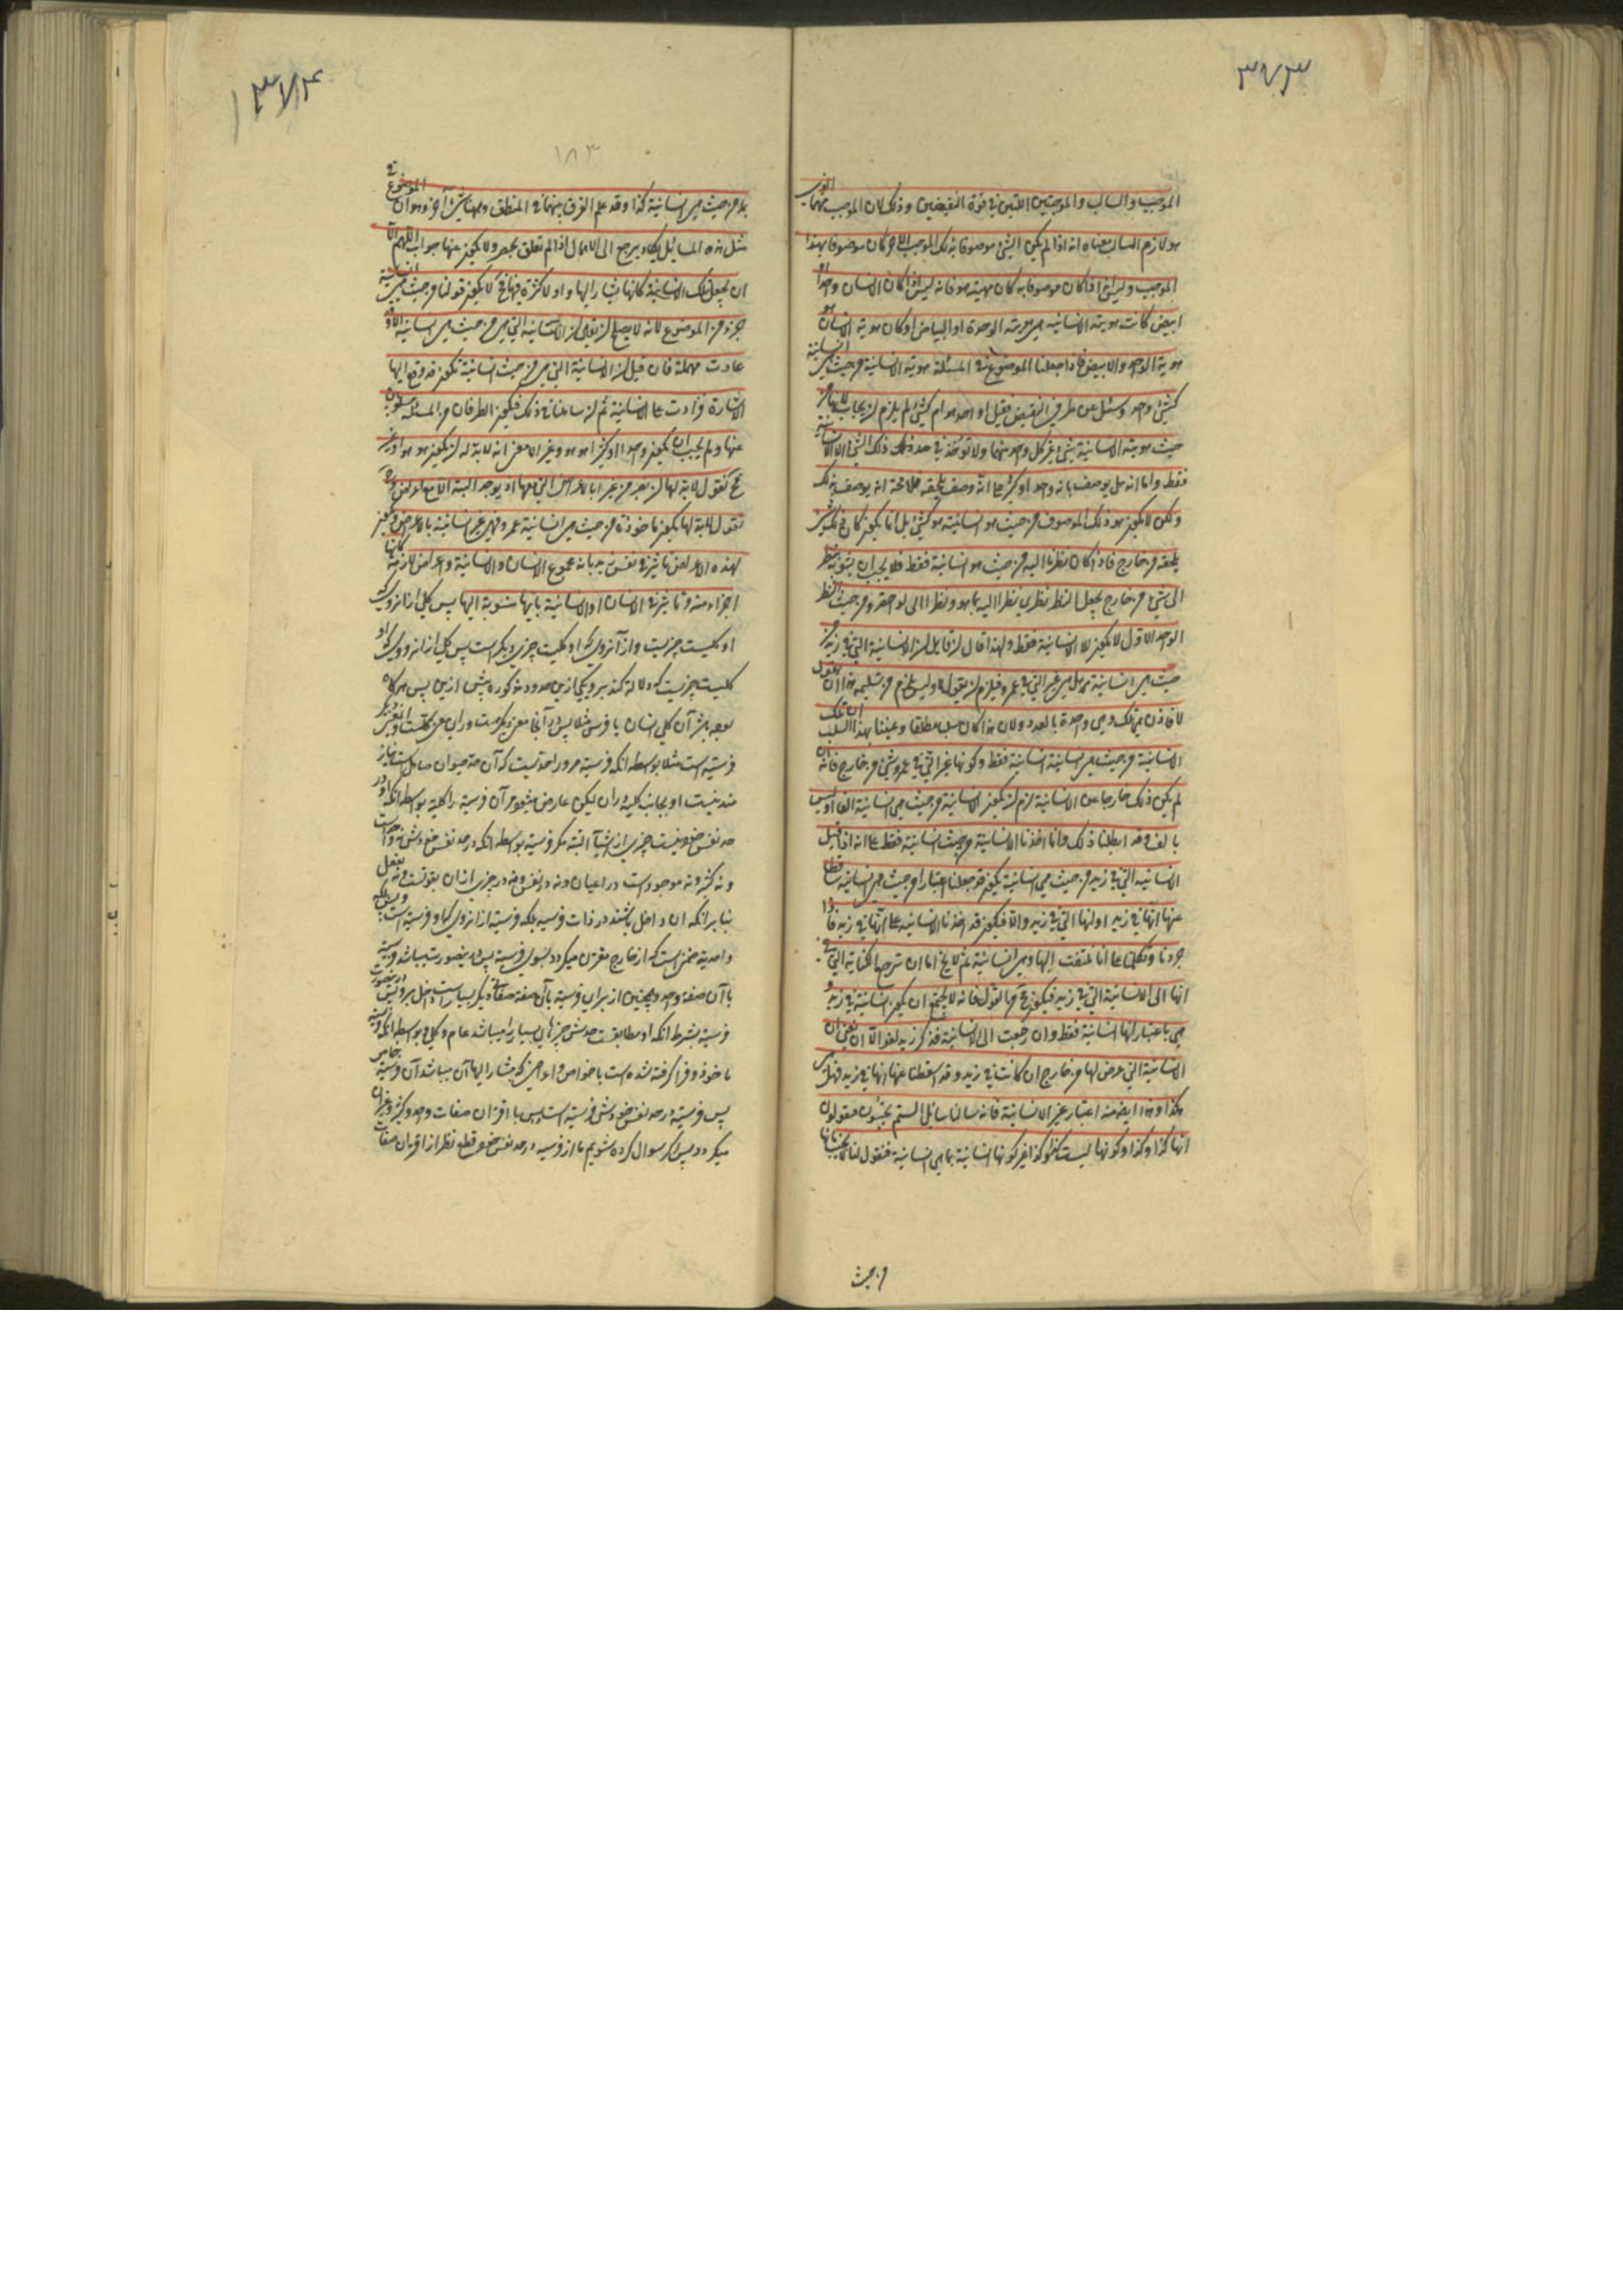 ۳۷۳
الموجب والسالب والموجبتين اللتين في قوة النقيضين وذلك لان الموجب منهما الذي
هو لازم السالب معناه انه اذا لم يكن الشئ موصوفا بذلك الموجب الاخر كان موصوفا بهذا
الموجب وليس اذا كان موصوفا به كان مهيته هو فانه ليس اذا كان الانسان واحدا او
ابيض كانت هوية الانسانية هي هوية الوحدة او البياض او كان هوية الانسان هو
هوية الواحد والابيض فاذا جعلنا الموضوع في المسئلة هوية الانسانية من حيث هي انسانية
كشئ واحد وسئل عن طرفي النقيض فقيل اواحد هو ام كثير لم يلزم ان يجاب لانها من
حيث هوية الانسانية شئ غير كل واحد منهما ولا يؤخذ في حد ذلك الشئ الا الانسانية
فقط واما انه هل يوصف بانه واحد او كثير على انه وصف يلحقه فلا محة انه يوصف بذلك
ولكن لا يكون هو ذلك الموصوف من حيث هو انسانية هو كثير بل انما يكون كان ذلك شئ
يلحقه من خارج فاذا كان نظرنا اليه من حيث هو انسانية فقط فلا يجب ان يشوبه نظر
الى شئ من خارج يجعل النظر نظرين نظرا اليه بما هو ونظرا الى لواحقه ومن حيث النظر
الواحد الاول لا يكون الا الانسانية فقط ولهذا قال ان قايل ان الانسانية التي في زيد من
حيث هي انسانية هل هي غير التي في عمرو فيلزم ان يقول لا وليس يلزم من تسليمه هذا ان يقول
فاذن تلك وهي واحدة بالعدد لان هذا كان سلبا مطلقا وعنينا بهذا السلب ان تلك
الانسانية من حيث هي انسانية انسانية فقط وكونها غير التي في عمرو شئ من خارج فانه ان
لم يكن ذلك خارجا عن الانسانية لزم ان يكون الانسانية من حيث هي انسانية الفا او ليس
بالف وقد ابطلنا ذلك وانما اخذنا الانسانية من حيث انسانية فقط على انه اذا قيل
الانسانية التي في زيد من حيث هي انسانية يكون قد جعلنا اعتبارا من حيث هي انسانية ساقطا
عنها انها في زيد او انها التي في زيد والا فيكون قد اخذنا الانسانية على انها في زيد فاذا
جردنا وتكلمنا على انا نلتفت اليها وهي انسانية ثم لا يخ اما ان ترجع الكناية التي في
انها الى الانسانية التي في زيد فيكون هذا محالا من القول فانه لا يجتمع ان يكون انسانية في زيد و
هي باعتبار انها انسانية فقط وان رجعت الى الانسانية فذكر زيد لغو الا ان نعني ان
الانسانية التي عرض لها من خارج ان كانت في زيد وقد اسقطنا عنها انها في زيد هل هي
هكذا وهذا ايضا فيه اعتبار غير الانسانية فانه سالنا سائل الستم تجيبون فتقولون
انها كذا وكذا وكونها ليست كذا وكذا غير كونها انسانية بما هي انسانية فنقول لنا لا نجيب بانها
من حيث
۳۷۴
۱۸۳
بل من حيث هي انسانية كذا وقد علم الفرق بينهما في المنطق وههنا شئ آخر وهو ان الموضوع في
مثل هذه المسائل يكاد يرجع الى الاهمال اذا لم تعلق بحصر ولا يكون عنها جواب اللهم الا
ان يجعل تلك الانسانية كانها مشار اليها او لا كثرة فيها فح لا يكون قولنا من حيث هي انسانية
جزء من الموضوع لانه لا يصلح ان يقال ان الانسانية التي هي من حيث هي انسانية الا وقد
عادت مهملة فان قيل ان الانسانية التي هي من حيث انسانية تكون قد وقع اليها
الاشارة فزادت على الانسانية ثم ان ساهلنا في ذلك فيكون الطرفان من المسئلة مسلوبين
عنها ولم يجب ان يكون واحدا او كثيرا هو هو وغيرا الا معنى انه لا بد له ان يكون هو هو او غير
فح نقول لا بد لها ان تصير غيرا بالاعراض التي معها اذ لا يوجد البتة الا مع الاعراض وح
نقول لا بد لها يكون ماخوذة من حيث هي انسانية عمرو فهي غير انسانية بالاعراض فيكون
لهذه الاعراض تاثير في نفس زيد بانه مجموع الانسان والانسانية واعراض لازمة كانها
اجزاء منه وتاثير في الانسان او الانسانية بانها منسوبة اليها پس كلى از انروى كه
او كليست چيزيست واز آنروى كه او كليت چيزى ديكر است پس كلى از انروى كه او
كليست چيزيست كه دلالت كند برو يكى از اين حدود مذكوره پيش ازين پس هركاه
بوجه باشد آن كلى انسان يا فرس مثلا پس در آنجا معنى ديكر هست وراى معنى كليت وآن معنى ديكر
فرسيت است مثلا بواسطه انكه فرسية مر او را حديست كه آن حد حيوان صاهل است
مندنيست او بجانب كليت وران ليكن عارض ميشود مر آن فرسية را كلية بواسطه انكه او در
حد نفس خود نيست چيزى از اشيا البته مكر فرسية بواسطه انكه در حد نفس خودش نه واحد است
ونه كثير ونه موجود است در اعيان ونه در نفس ونه در چيزى از ان بقوت ونه بفعل
بنابر انكه ان داخل باشند در ذات فرسيه بلكه فرسية از انروى كه او فرسية است وبس بلكه
واحدية صفتى است كه از خارج مقترن ميكردد بسوى فرسية پس درينصورت ميباشد فرسية
با آن صفة واحد وهمچنين از براى فرسية با آن صفة صفاتى ديكر بسيار است داخل برو پس درينصورت
فرسية بشرط انكه او مطابقست حدش چيزهاى بسيار را ميباشد عام وكلى وبواسطه انكه فرسية
ماخوذ وفرا كرفته شده است با خواص واعراض كه مشار اليها آن ميباشد آن فرسية خاص
پس فرسية در حد نفس خودش فرسية است وبس با اقتران صفات واحد وكثير وغيران
ميكردد پس اكر سوال كرده شويم ما از فرسيه در حد نفس خود قطع نظر از اقتران صفات